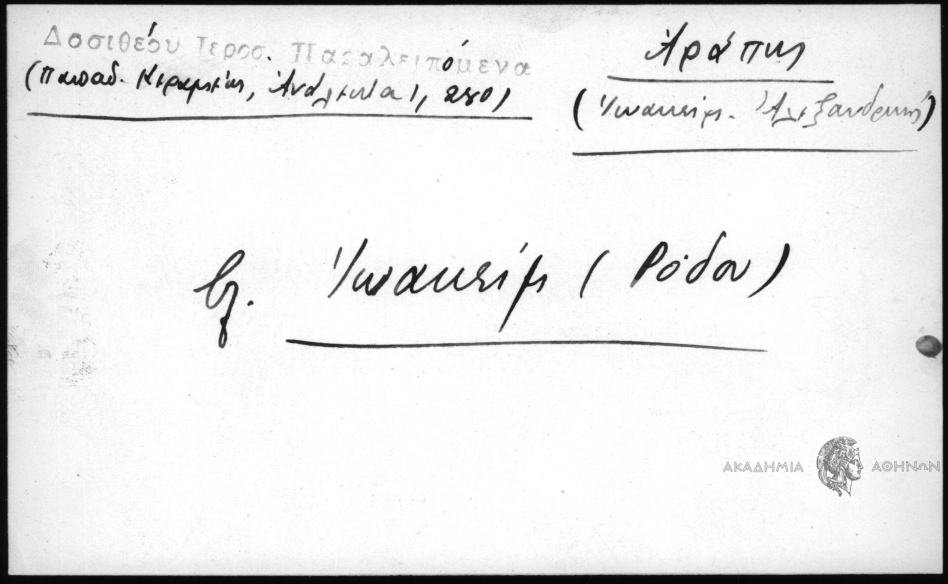 Δοσιθέου Ιεροσ. Παραλειπόμενα
(Παπαδ. Κεραμεύς, Ἀνάλεκτα 1, 280)
Ἀράπης
(Ἰωακείμ. Ἀλεξανδρινός)
βλ. Ἰωακείμ (Ρόδου)
ΑΚΑΔΗΜΙΑ ΑΘΗΝΩΝ